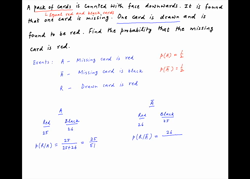 A pack of cards is counted with face downwards. It is found
↳ Equal red and black cards
that one card is missing. One card is drawn and is
found to be red. Find the probability that the missing
card is red.
P(A) = 1/2
Events: A - Missing card is red
Ā - Missing card is black
P(Ā) = 1/2
R - Drawn card is red
A
Ā
Red Black
25 26
Red Black
26 25
P(R/A) = 25/(25+26) = 25/51
P(R/Ā) = 26